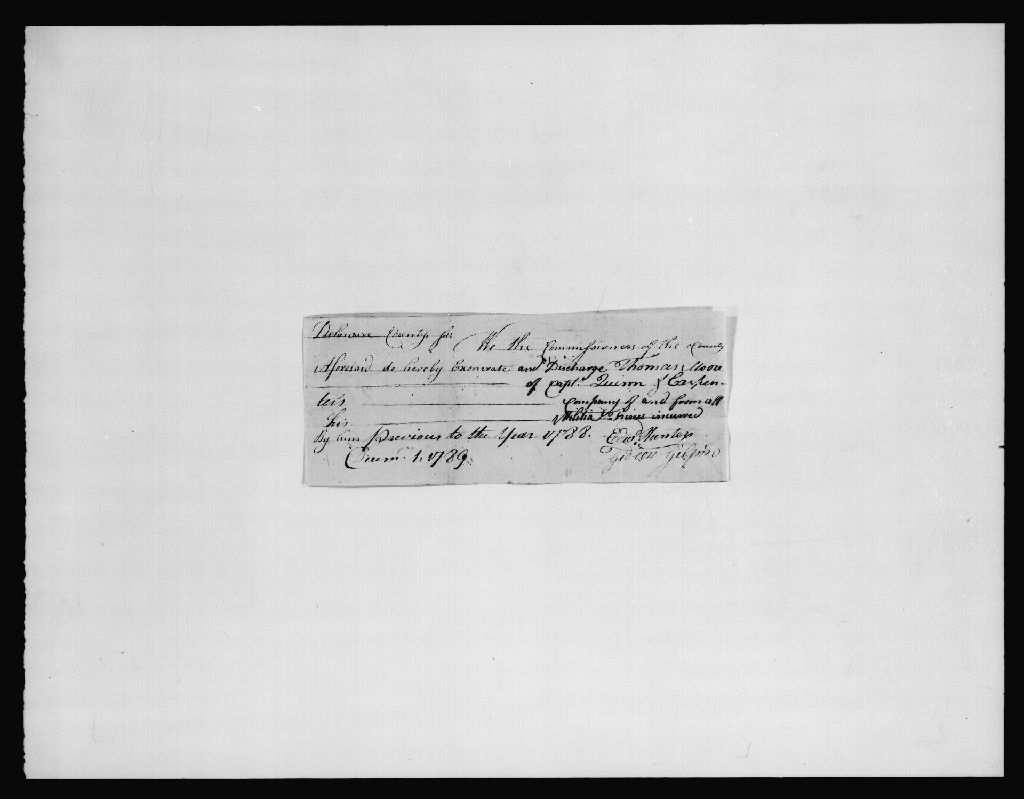 Delaware County ss
We the Commissioners of the County
Aforesaid do hereby Exonerate and Discharge Thomas
of Capt. Quinn & Carpen-
ter's company of and from all
his Militia Fines incurred
By him Previous to the Year 1788.
1. 1789. Gideon Gilpin